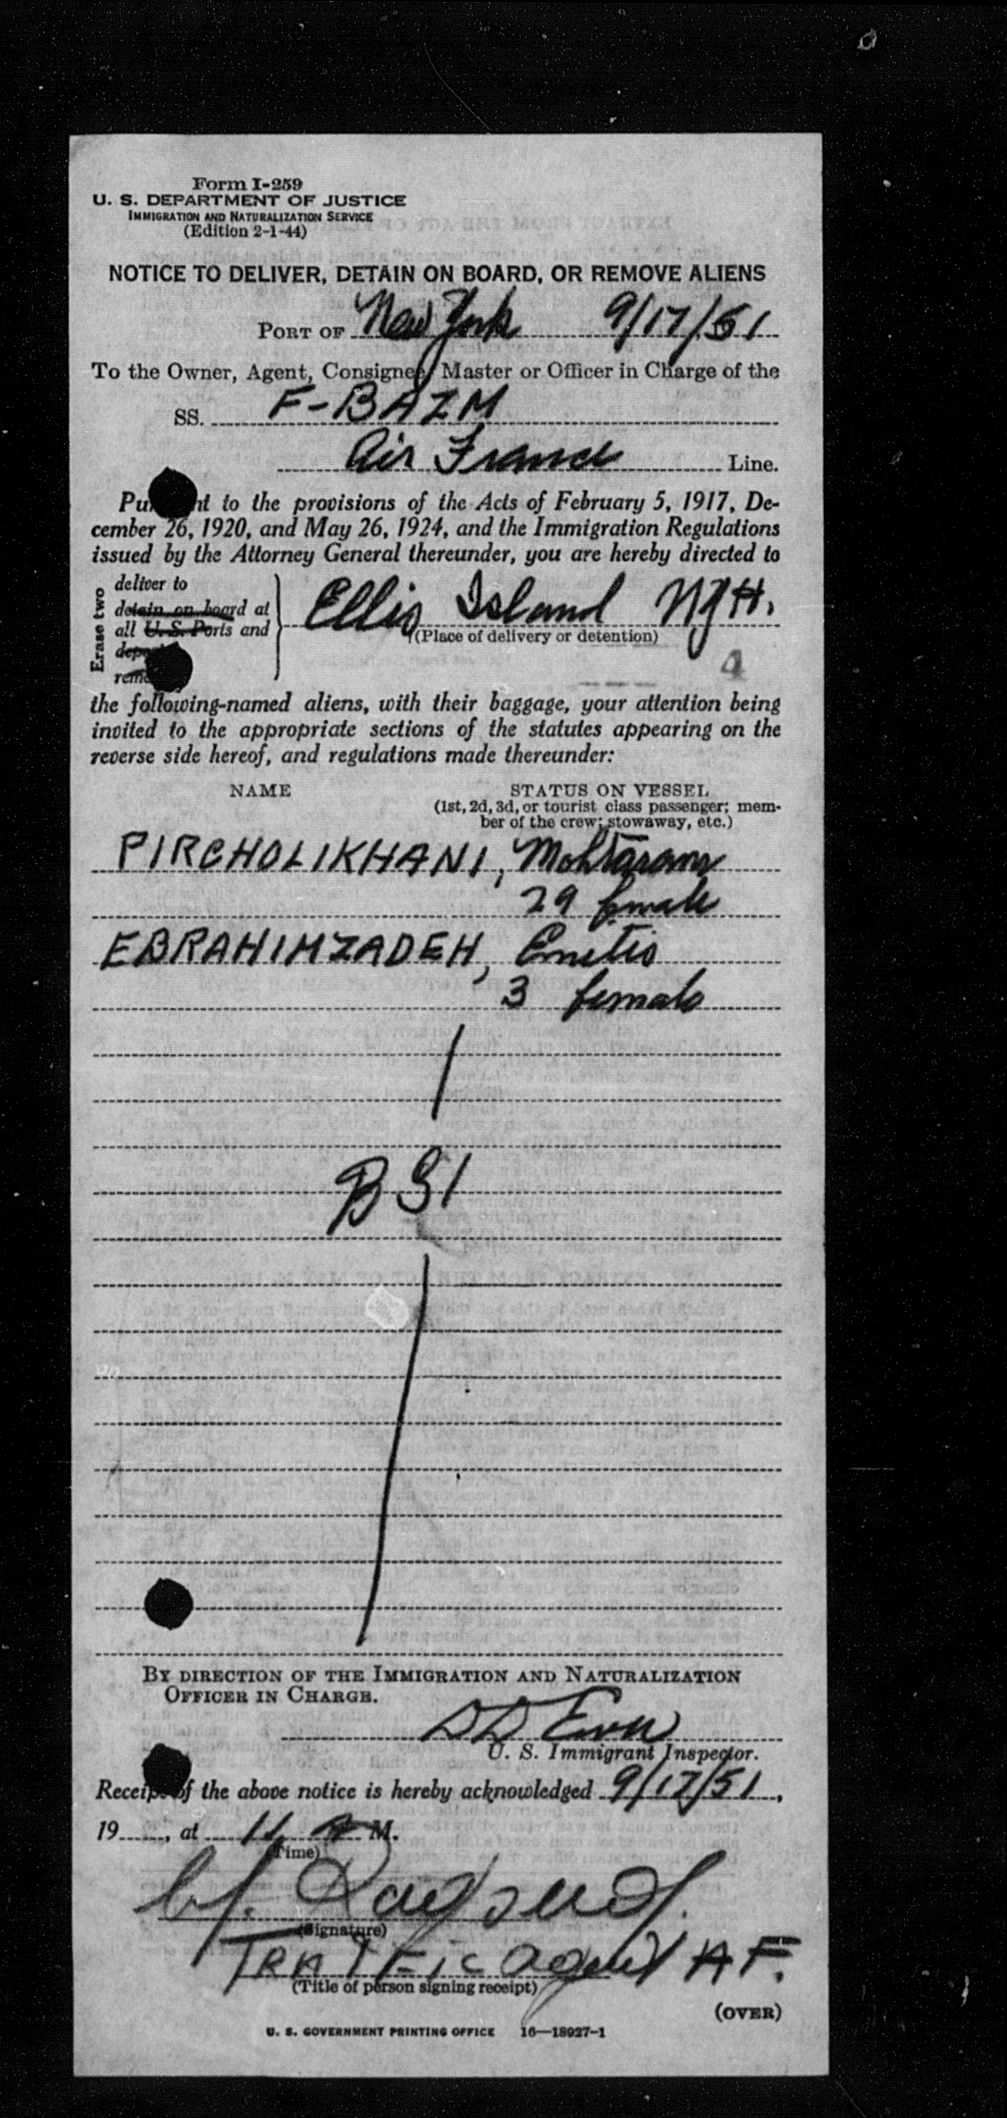 Form I-259
U. S. DEPARTMENT OF JUSTICE
IMMIGRATION AND NATURALIZATION SERVICE
(Edition 2-1-44)
NOTICE TO DELIVER, DETAIN ON BOARD, OR REMOVE ALIENS
PORT OF New York 9/17/51
To the Owner, Agent, Consignee, Master or Officer in Charge of the
SS. F-BAZM
Air France Line.
Pu nt to the provisions of the Acts of February 5, 1917, De-
cember 26, 1920, and May 26, 1924, and the Immigration Regulations
issued by the Attorney General thereunder, you are hereby directed to
Erase two
deliver to
detain on board at
all U. S. Ports and
Ellis Island NYH.
(Place of delivery or detention)
4
the following-named aliens, with their baggage, your attention being
invited to the appropriate sections of the statutes appearing on the
reverse side hereof, and regulations made thereunder:
NAME STATUS ON VESSEL
(1st, 2d, 3d, or tourist class passenger; mem-
ber of the crew; stowaway, etc.)
PIRCHOLIKHANI, Mohtaram
29 female
EBRAHIMZADEH, Emetis
3 female
BSI
BY DIRECTION OF THE IMMIGRATION AND NATURALIZATION
OFFICER IN CHARGE.
U. S. Immigrant Inspector.
Receipt of the above notice is hereby acknowledged 9/17/51,
19, at 11 A M.
(Time)
(Signature)
TRAFFic agent AF.
(Title of person signing receipt)
(OVER)
U. S. GOVERNMENT PRINTING OFFICE 16—18927-1